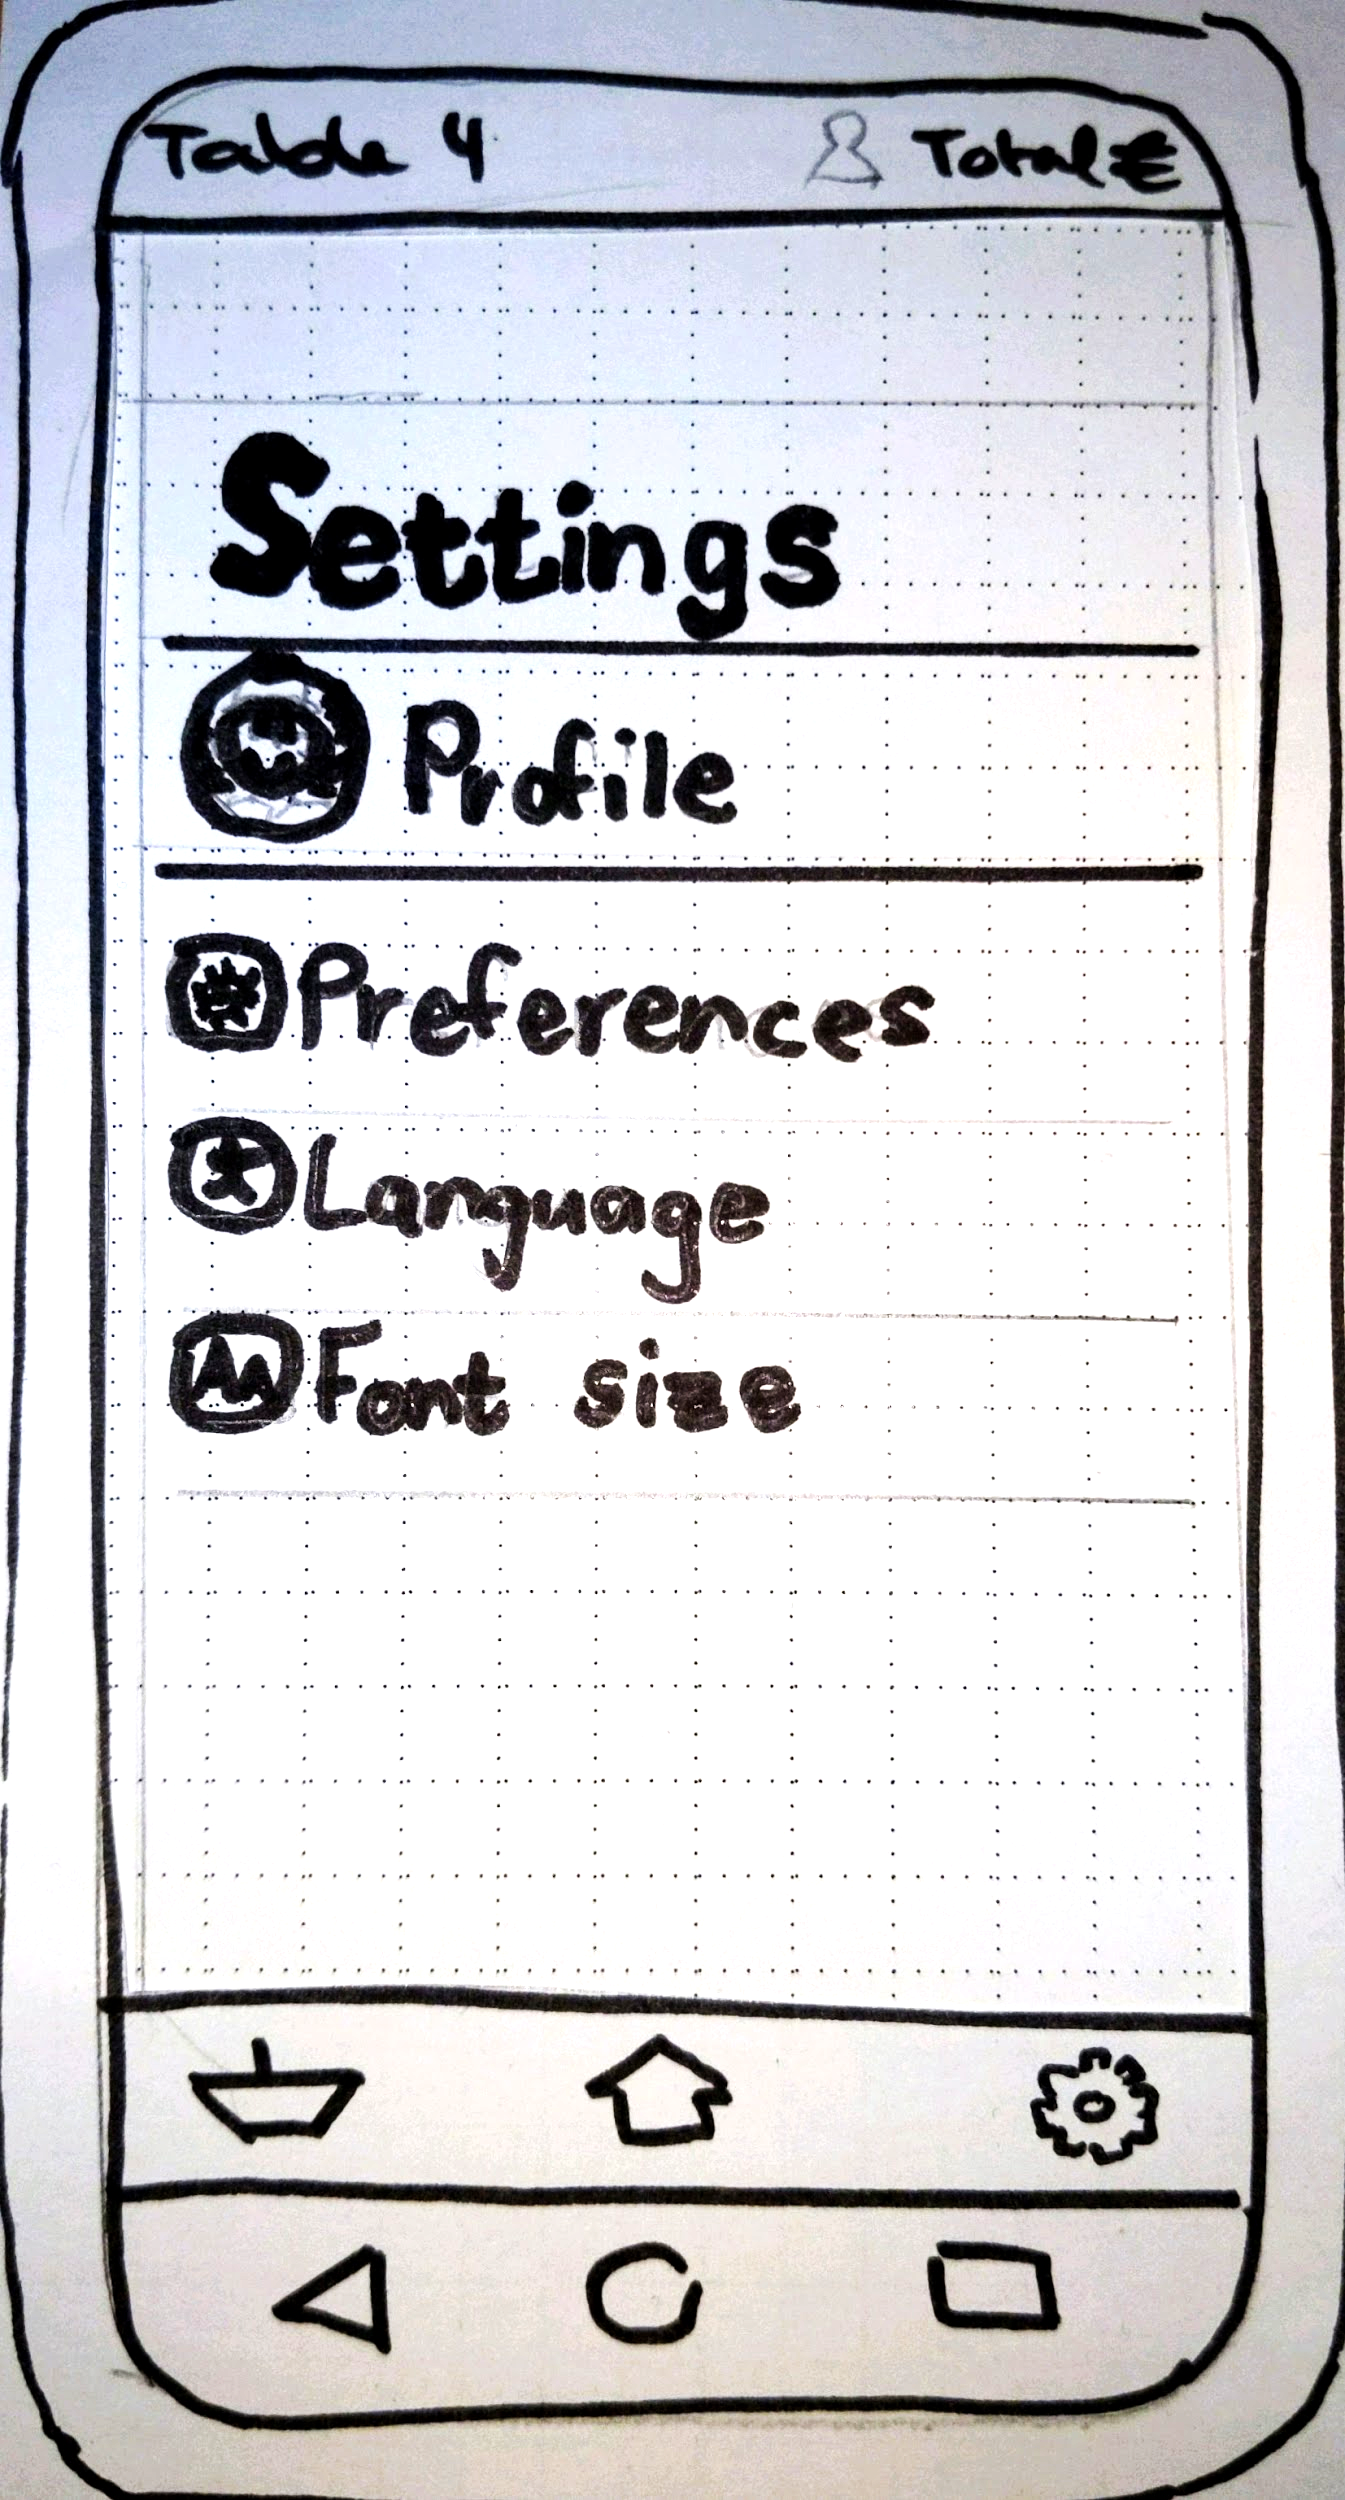 Table 4 Total €
Settings
Profile
Preferences
Language
AA Font size